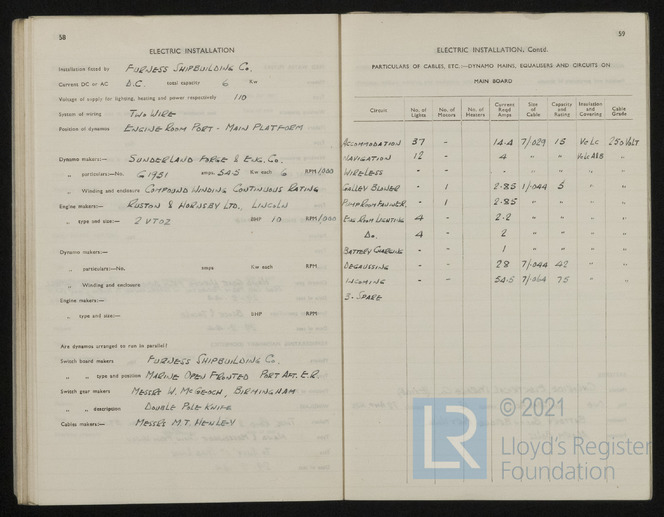 58
ELECTRIC INSTALLATION
Installation fitted by FURNESS SHIPBUILDING CO.
Current DC or AC D.C. total capacity 6 Kw
Voltage of supply for lighting, heating and power respectively 110
System of wiring TWO WIRE
Position of dynamos ENGINE ROOM PORT - MAIN PLATFORM
Dynamo makers:— SUNDERLAND FORGE & ENG. CO.
„ particulars:—No. G1951 amps 54.5 Kw each 6 RPM 1000
„ Winding and enclosure COMPOUND WINDING CONTINUOUS RATING
Engine makers:— RUSTON & HORNSBY LTD., LINCOLN
„ type and size:— 2 VTOZ BHP 10 RPM 1000
Dynamo makers:—
„ particulars:—No. amps Kw each RPM
„ Winding and enclosure
Engine makers:—
„ type and size:— BHP RPM
Are dynamos arranged to run in parallel?
Switch board makers FURNESS SHIPBUILDING CO.
„ „ type and position MARINE OPEN FRONTED PORT AFT. E.R.
Switch gear makers MESSRS W. MCGEOCH, BIRMINGHAM
„ „ description DOUBLE POLE KNIFE
Cables makers:— MESSRS M.T. HENLEY
59
ELECTRIC INSTALLATION, Contd.
PARTICULARS OF CABLES, ETC.:—DYNAMO MAINS, EQUALISERS AND CIRCUITS ON
MAIN BOARD
Circuit No. of Lights No. of Motors No. of Heaters Current Reqd Amps Size of Cable Capacity and Rating Insulation and Covering Cable Grade
ACCOMMODATION 37 - - 14.4 7/029 15 V.C.L.C. 250 VOLT
NAVIGATION 12 - - 4 „ „ „
WIRELESS - - - „ „ „ „
GALLEY BLOWER - 1 2.85 1/.044 5 „ „
PUMP ROOM - 1 2.85 „ „ „ „
ENG. ROOM LIGHTING 4 - 2.2 „ „ „ „
DO. 4 - 2 „ „ „ „
BATTERY CHARGING - - 1 „ „ „ „
DEGAUSSING - - 28 7/.044 42 „ „
INCOMING - - 54.5 7/.064 75 „ „
3 - SPARE
LR
© 2021
Lloyd's Register
Foundation